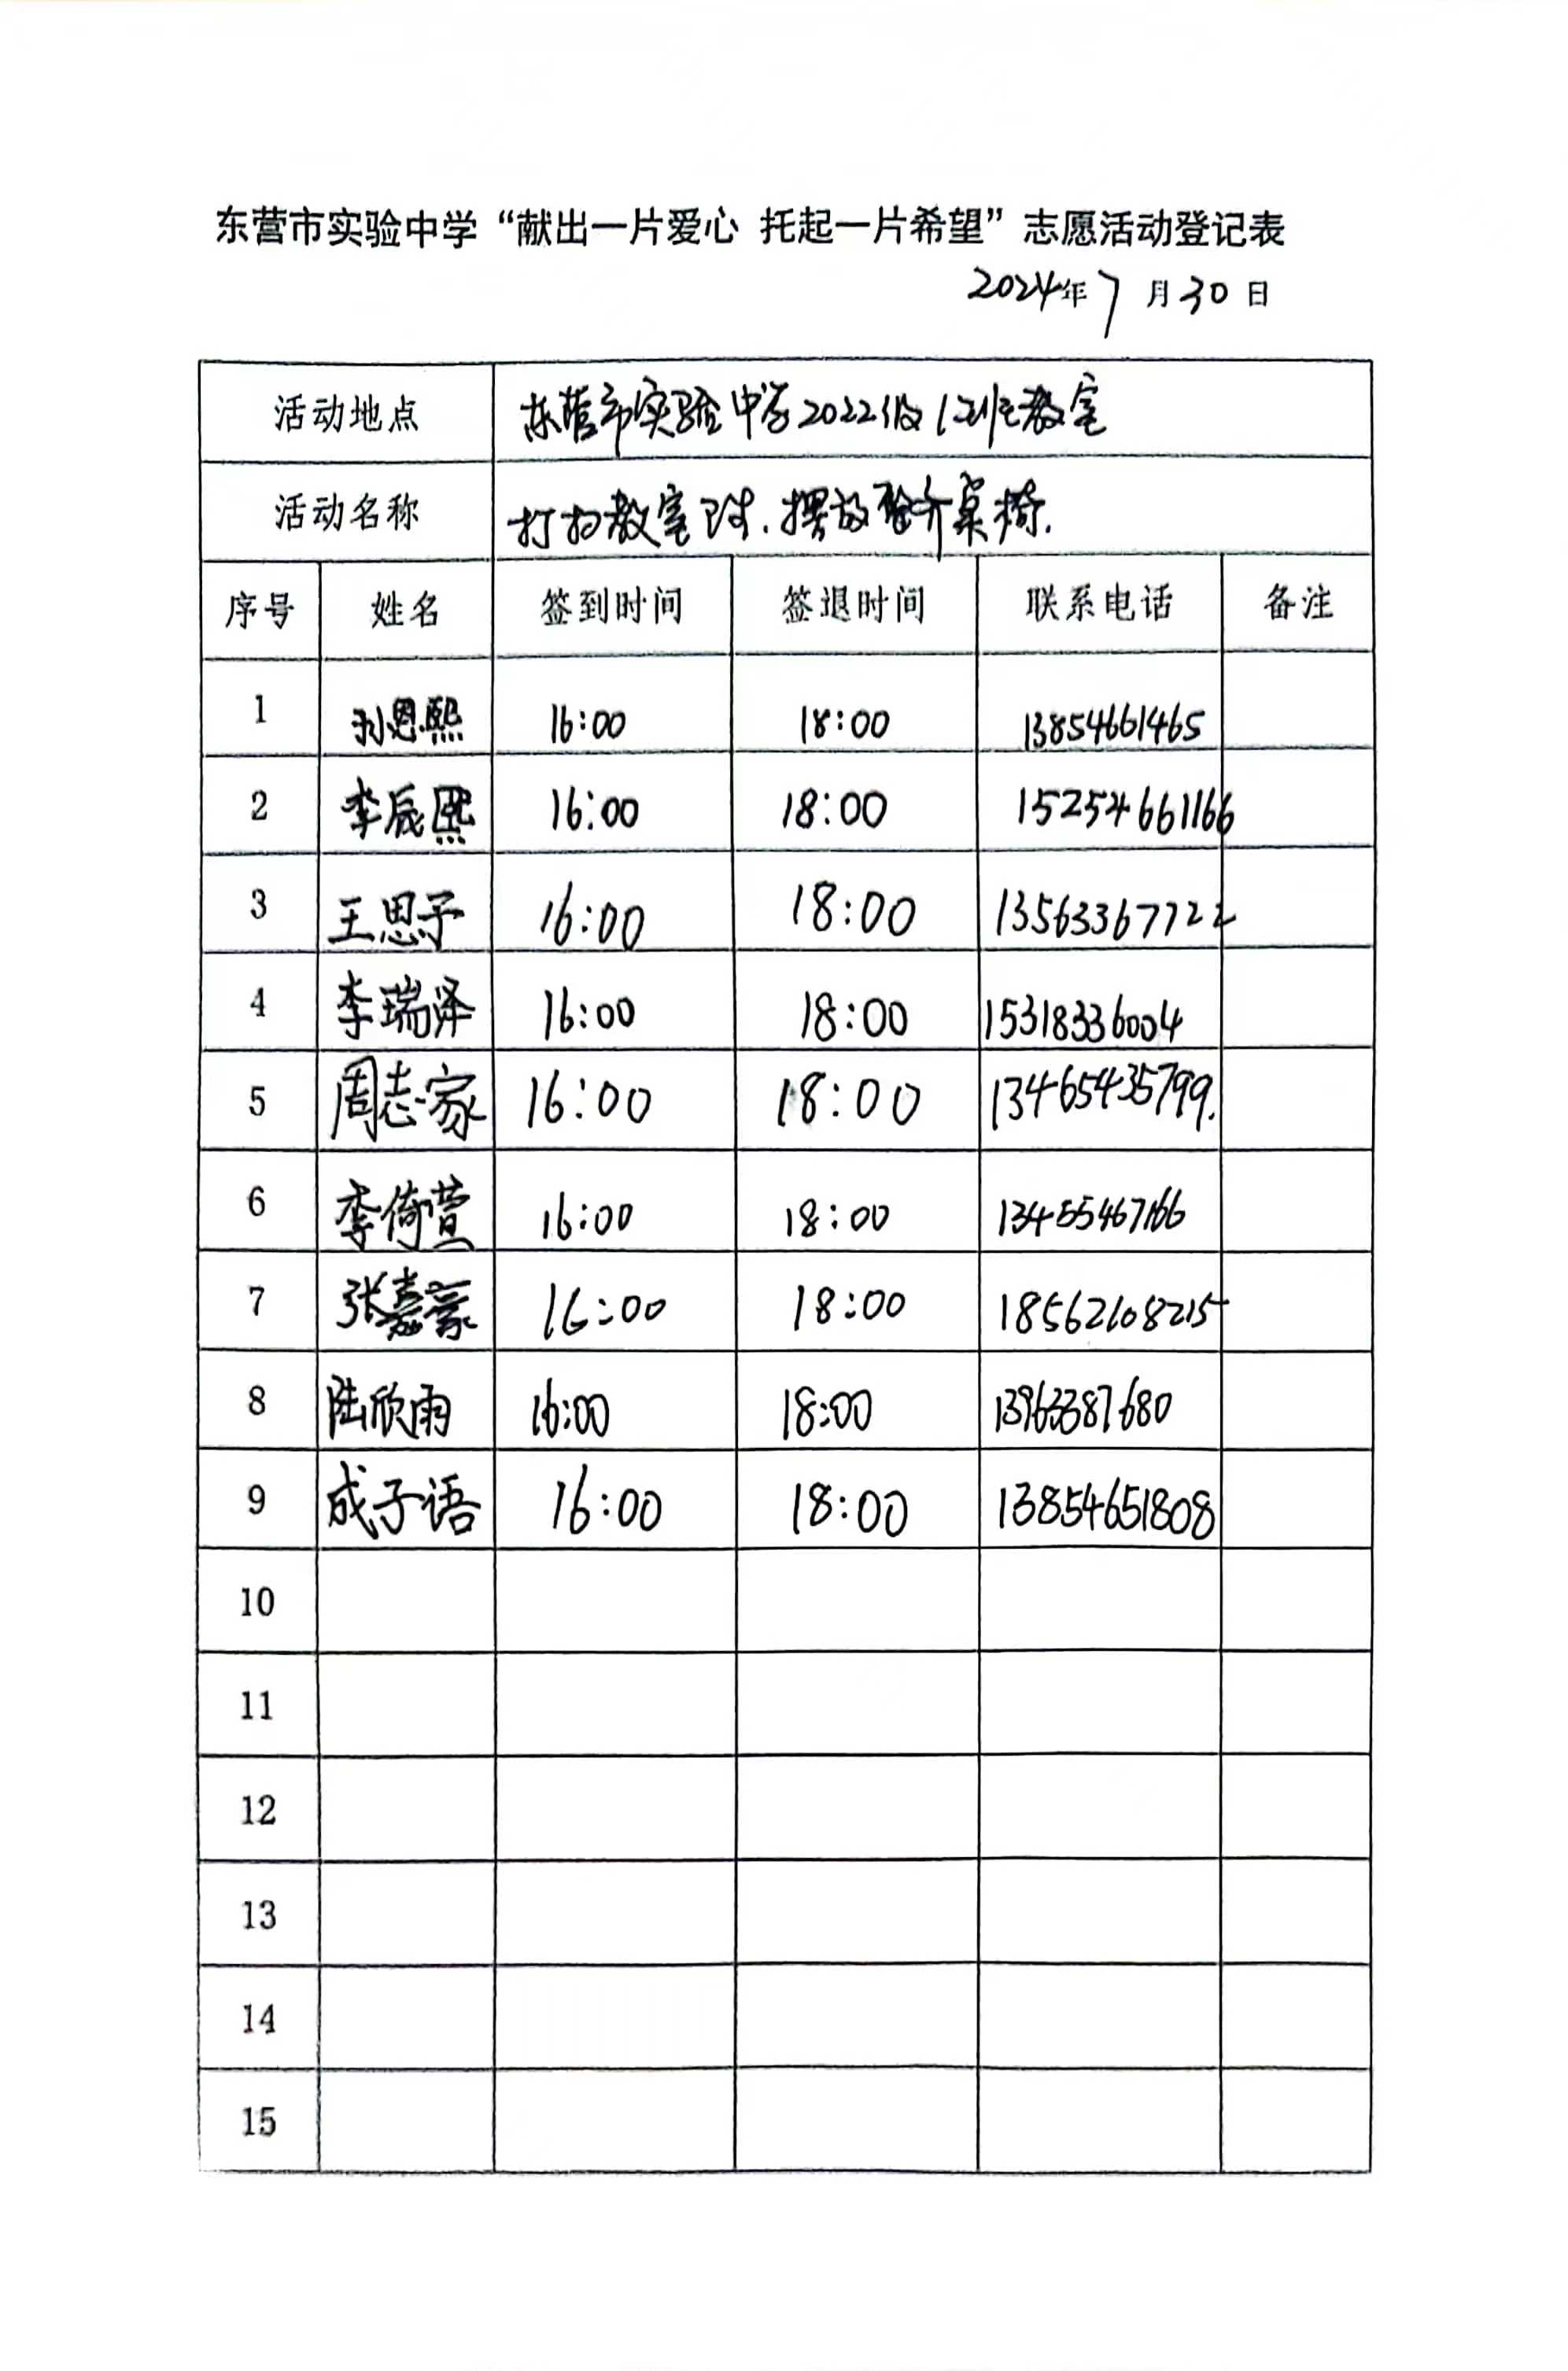 东营市实验中学“献出一片爱心 托起一片希望”志愿活动登记表
2024年7月30日
活动地点 东营市实验中学2022级12班教室
活动名称 打扫教室卫生.摆放整齐桌椅.
序号 姓名 签到时间 签退时间 联系电话 备注
1 刘恩熙 16:00 18:00 13854661465
2 李辰熙 16:00 18:00 15254661166
3 王思予 16:00 18:00 13563367722
4 李瑞泽 16:00 18:00 15318336004
5 周志家 16:00 18:00 13465435799.
6 李倚萱 16:00 18:00 13455467166
7 张嘉豪 16:00 18:00 18562108215
8 陆欣雨 16:00 18:00 13963387680
9 成子语 16:00 18:00 13854651808
10
11
12
13
14
15